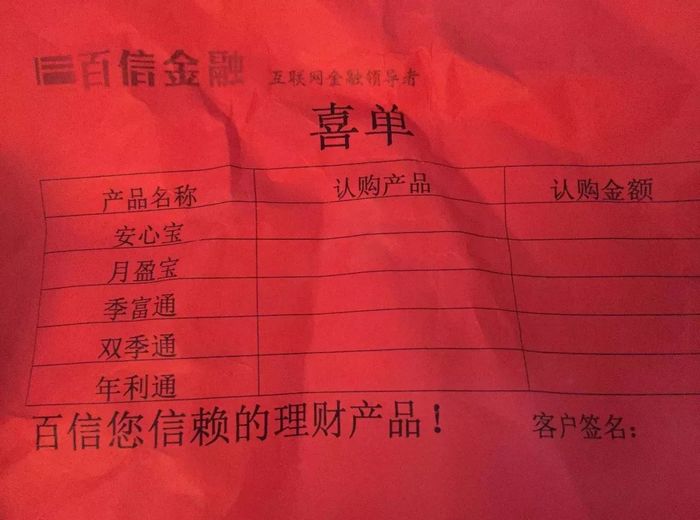 百信金融 互联网金融领导者
喜单
产品名称 认购产品 认购金额
安心宝
月盈宝
季富通
双季通
年利通
百信您信赖的理财产品！ 客户签名：